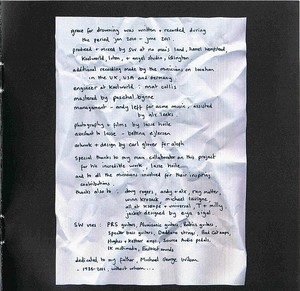 grace for drowning was written + recorded, during
the period jan 2010 - june 2011.
produced + mixed by SW at no man's land, hemel hempstead,
Koolworld, luton, + angel studios, islington
additional recording made by the musicians on location
in the UK, USA and Germany
engineer at koolworld: mat collis
mastered by paschal byrne
management - andy leff for acme music, assisted
by alx leeks
photography + films by lasse hoile
assistant to lasse - bettina ejlersen
artwork + design by carl glover for aleph
special thanks to my main collaborator on this project
for his incredible work, lasse hoile
and to all the musicians involved for their inspiring
contributions
thanks also to: tony rogers, andy + alx, ray nutter,
all at Kscope + universal, T + milly
jacket designed by eya sigal.
SW uses: PRS guitars, guitars, Babicz guitars,
Spector bass guitars, Daddario strings, Bad Cat amps,
Hughes + Kettner amps, Source Audio pedals,
IK multimedia,
dedicated to my father, Michael George Wilson
- 1938-2011, without whom....